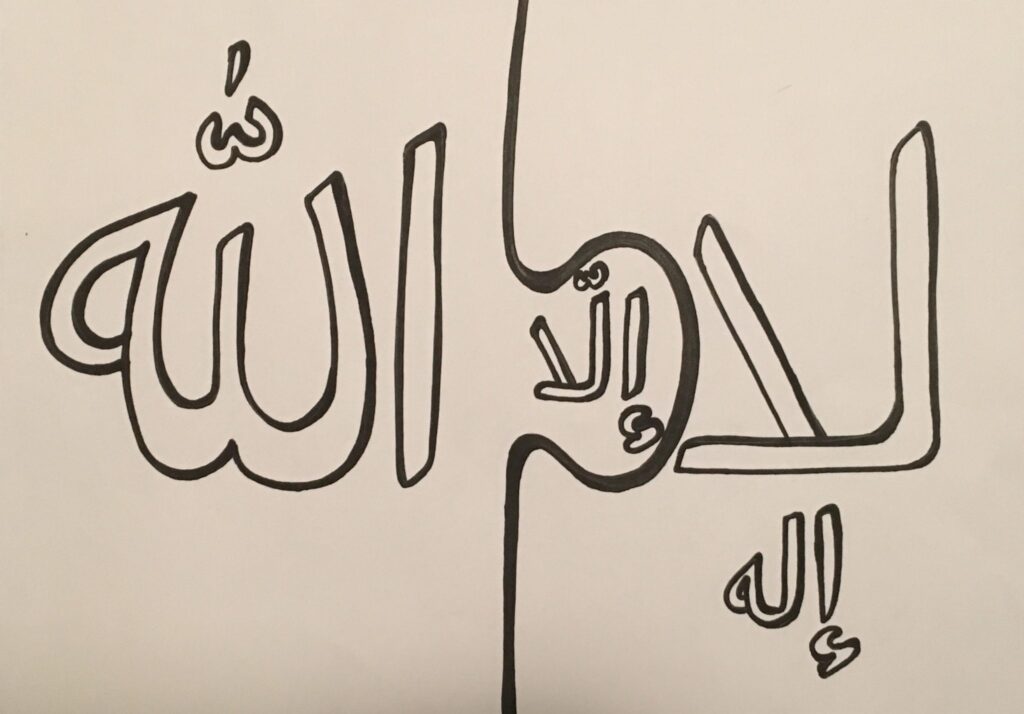 لا
إله
إلّا
اللّٰه